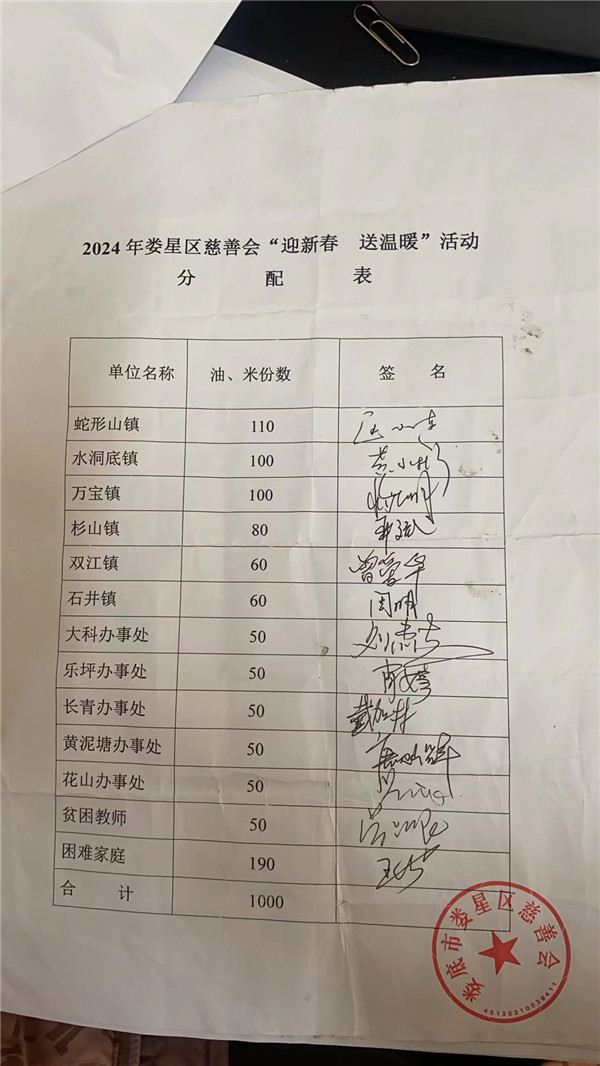 2024年娄星区慈善会“迎新春 送温暖”活动
分 配 表
单位名称 油、米份数 签 名
蛇形山镇 110
水洞底镇 100
万宝镇 100
杉山镇 80
双江镇 60
石井镇 60 周明
大科办事处 50
乐坪办事处 50
长青办事处 50
黄泥塘办事处 50
花山办事处 50
贫困教师 50
困难家庭 190
合 计 1000
娄底市娄星区慈善会